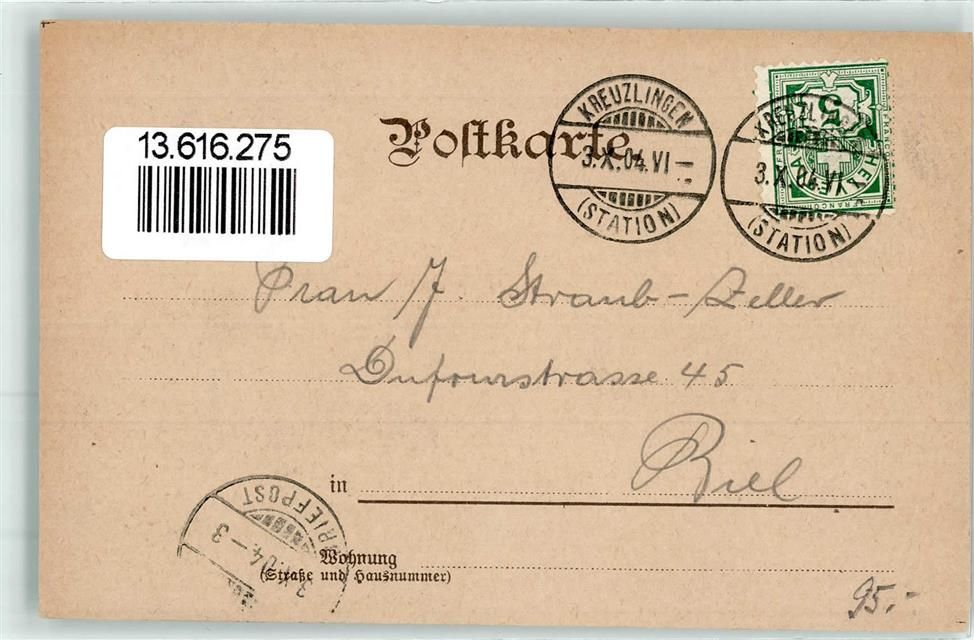 13.616.275
Postkarte
KREUZLINGEN
3.X.04.VI
(STATION)
KREUZLINGEN
3.X.04.VI
(STATION)
5
HELVETIA
FRANCO
Frau J. Straub-Zeller
Dufourstrasse 45
in Biel
BRIEFPOST
3.X.04-3
Wohnung
(Straße und Hausnummer)
95.-